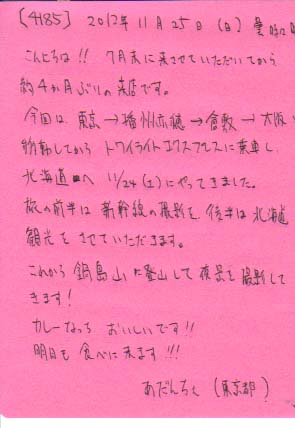 [4185] 2012年11月25日 (日) 曇時々
こんにちは!! 7月末に来させていただいてから
約4か月ぶりの来店です。
今回は 東京→播州赤穂→倉敷→大阪
移動してから トワイライトエクスプレスに乗車し
北海道へ 11/24(土)にやってきました。
旅の前半は新幹線の撮影を 後半は北海道
観光をさせていただきます。
これから鍋島山に登山して夜景を撮影して
きます!
カレーなっち おいしいです!!
明日も食べに来ます!!!
あだんちぇ (東京都)